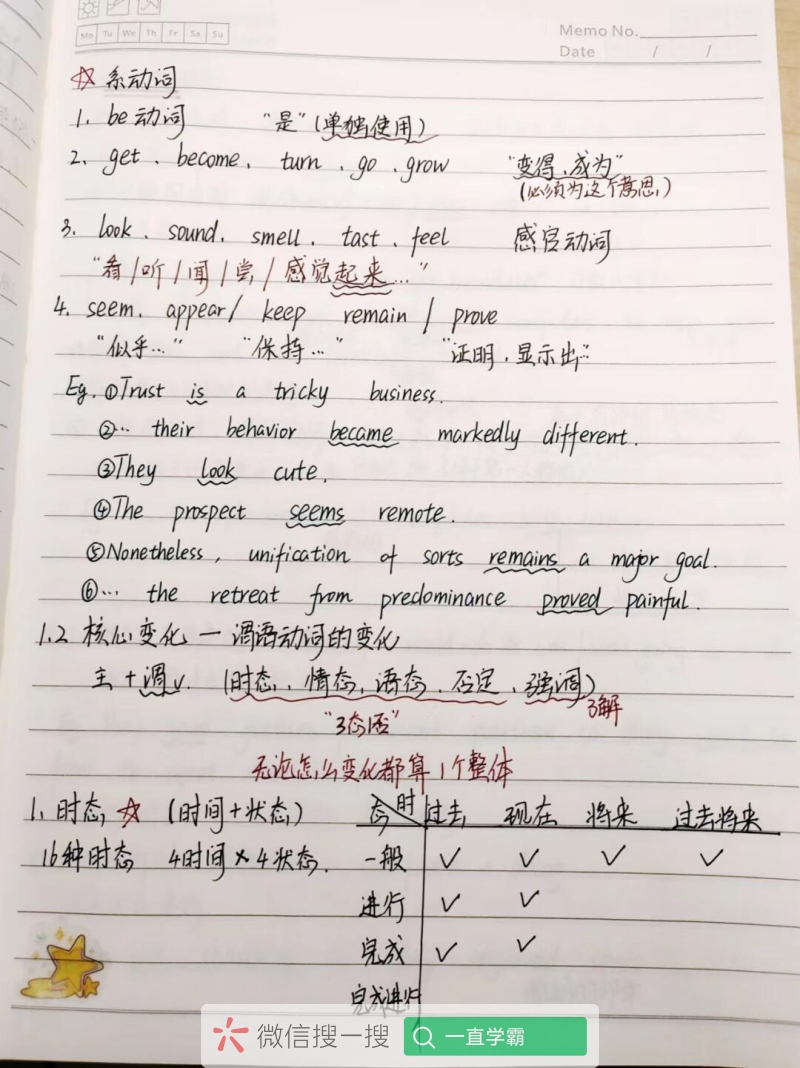 Mo Tu We Th Fr Sa Su
Memo No.
Date / /
☆ 系动词
1. be动词 "是"(单独使用)
2. get、become、turn、go、grow "变得、成为"
(必须为这个意思)
3. look、sound、smell、tast、feel 感官动词
"看/听/闻/尝/感觉起来…"
4. seem、appear/ keep remain / prove
"似乎…" "保持…" "证明,显示出…"
Eg. ①Trust is a tricky business.
②… their behavior became markedly different.
③They look cute.
④The prospect seems remote.
⑤Nonetheless, unification of sorts remains a major goal.
⑥… the retreat from predominance proved painful.
1.2 核心变化 — 谓语动词的变化
主+谓v. (时态、情态、语态、否定、强调)
了解
"3态否"
无论怎么变化都算1个整体
1. 时态 ☆ (时间+状态) 态 时 过去 现在 将来 过去将来
16种时态 4时间×4状态. 一般 ✓ ✓ ✓ ✓
进行 ✓ ✓
完成 ✓ ✓
完成进行
微信搜一搜 一直学霸